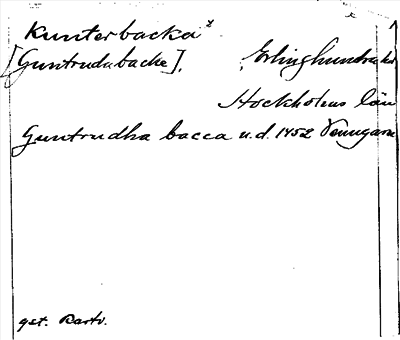 Kunterbacka
[Guntrudabacke], Erlinghundra hd
Stockholms län
Guntrudha bacca u.d. 1452 Venngarn
get. Rarty.